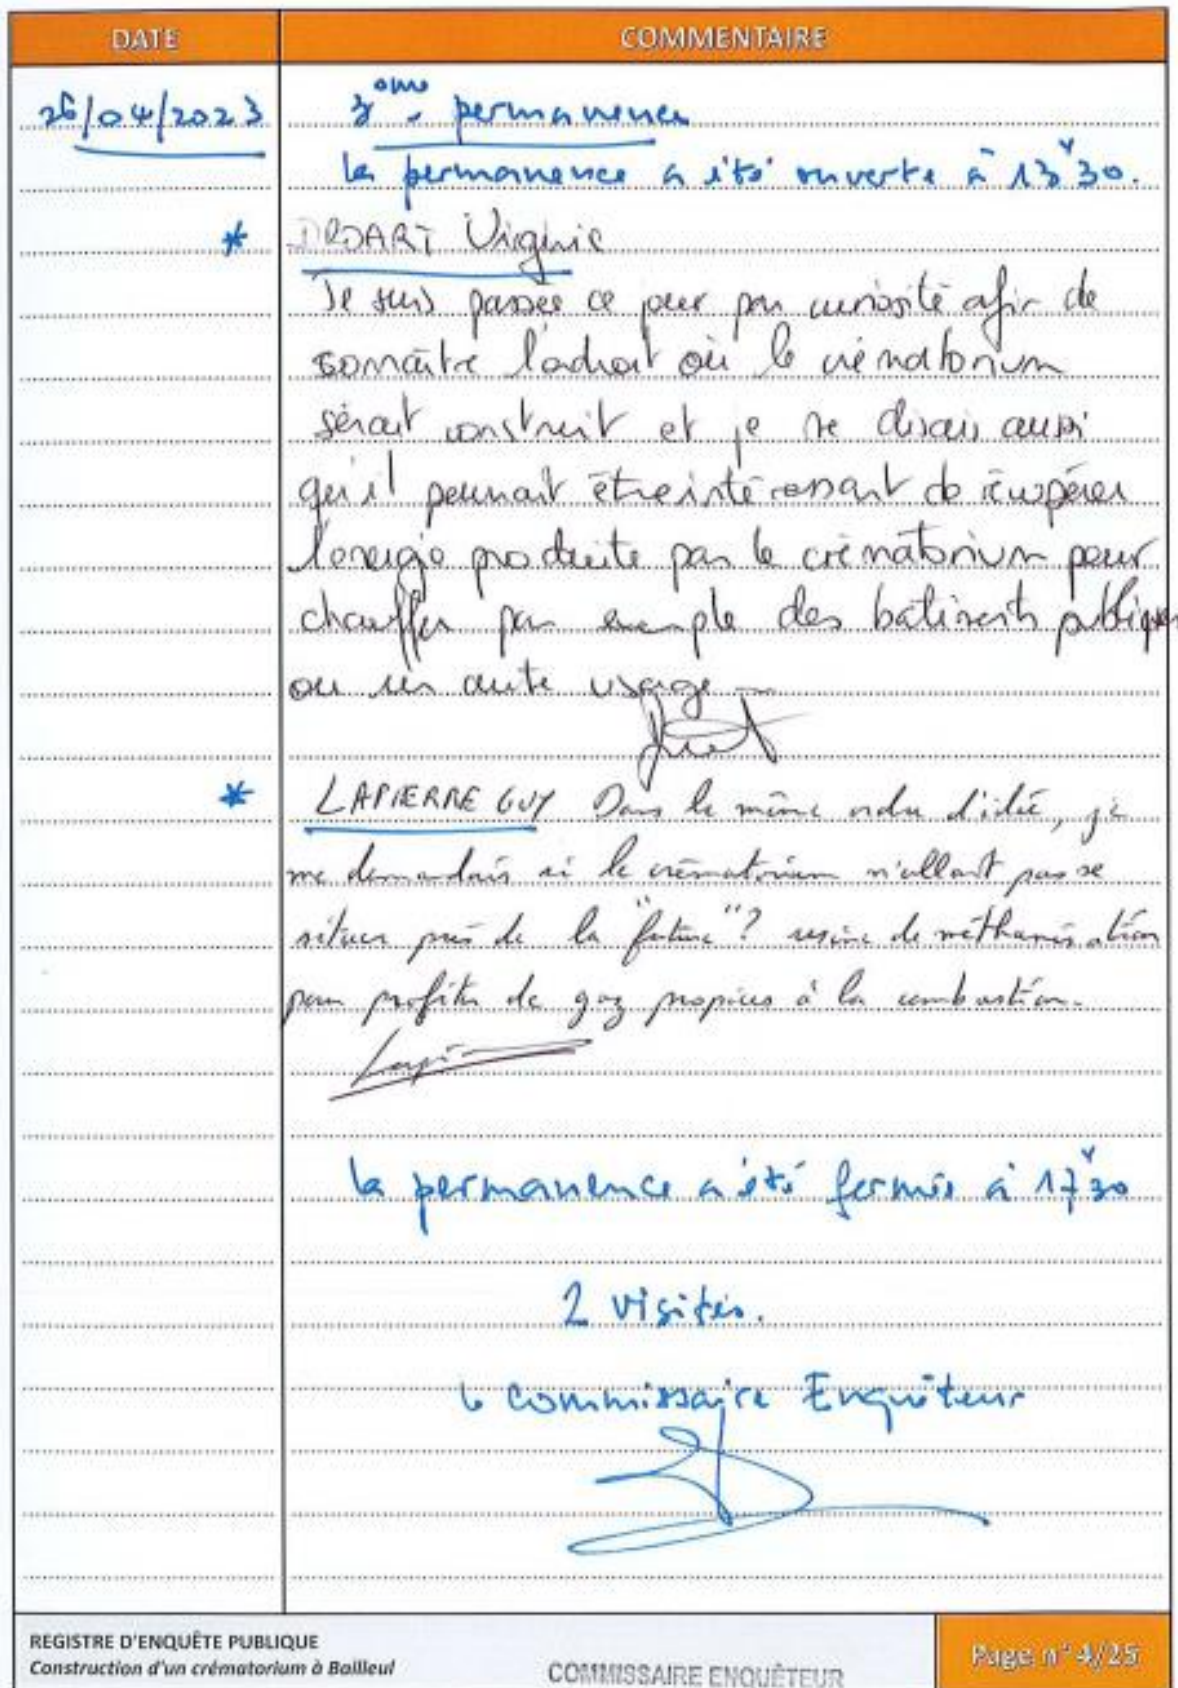 DATE COMMENTAIRE
26/04/2023 3ème permanence
la permanence a été ouverte à 13h30.
* DROART Virginie
Je suis passée ce jour par curiosité afin de
connaître l'adroit où le crématorium
serait construit et je me disais aussi
qu'il pourrait être intéressant de récupérer
l'énergie produite par le crématorium pour
chauffer par exemple des bâtiments publiques
ou un autre usage
* LAPIERRE GUY Dans le même ordre d'idée, je
me demandais si le crématorium n'allait pas se
situer près de la "future"? usine de méthanisation
pour profiter de gaz propices à la combustion.
la permanence a été fermée à 17h30
2 visites.
le Commissaire Enquêteur
REGISTRE D'ENQUÊTE PUBLIQUE
Construction d'un crématorium à Bailleul
COMMISSAIRE ENQUÊTEUR
Page n° 4/25